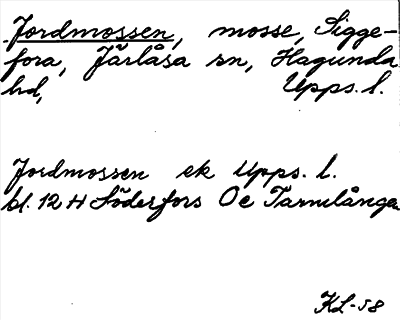 Jordmossen, mosse, Sigge-
fora, Järlåsa sn, Hagunda
hd, Upps. l.
Jordmossen ek Upps. l.
bl. 12 H Söderfors Oe Tarmlången
KL-58